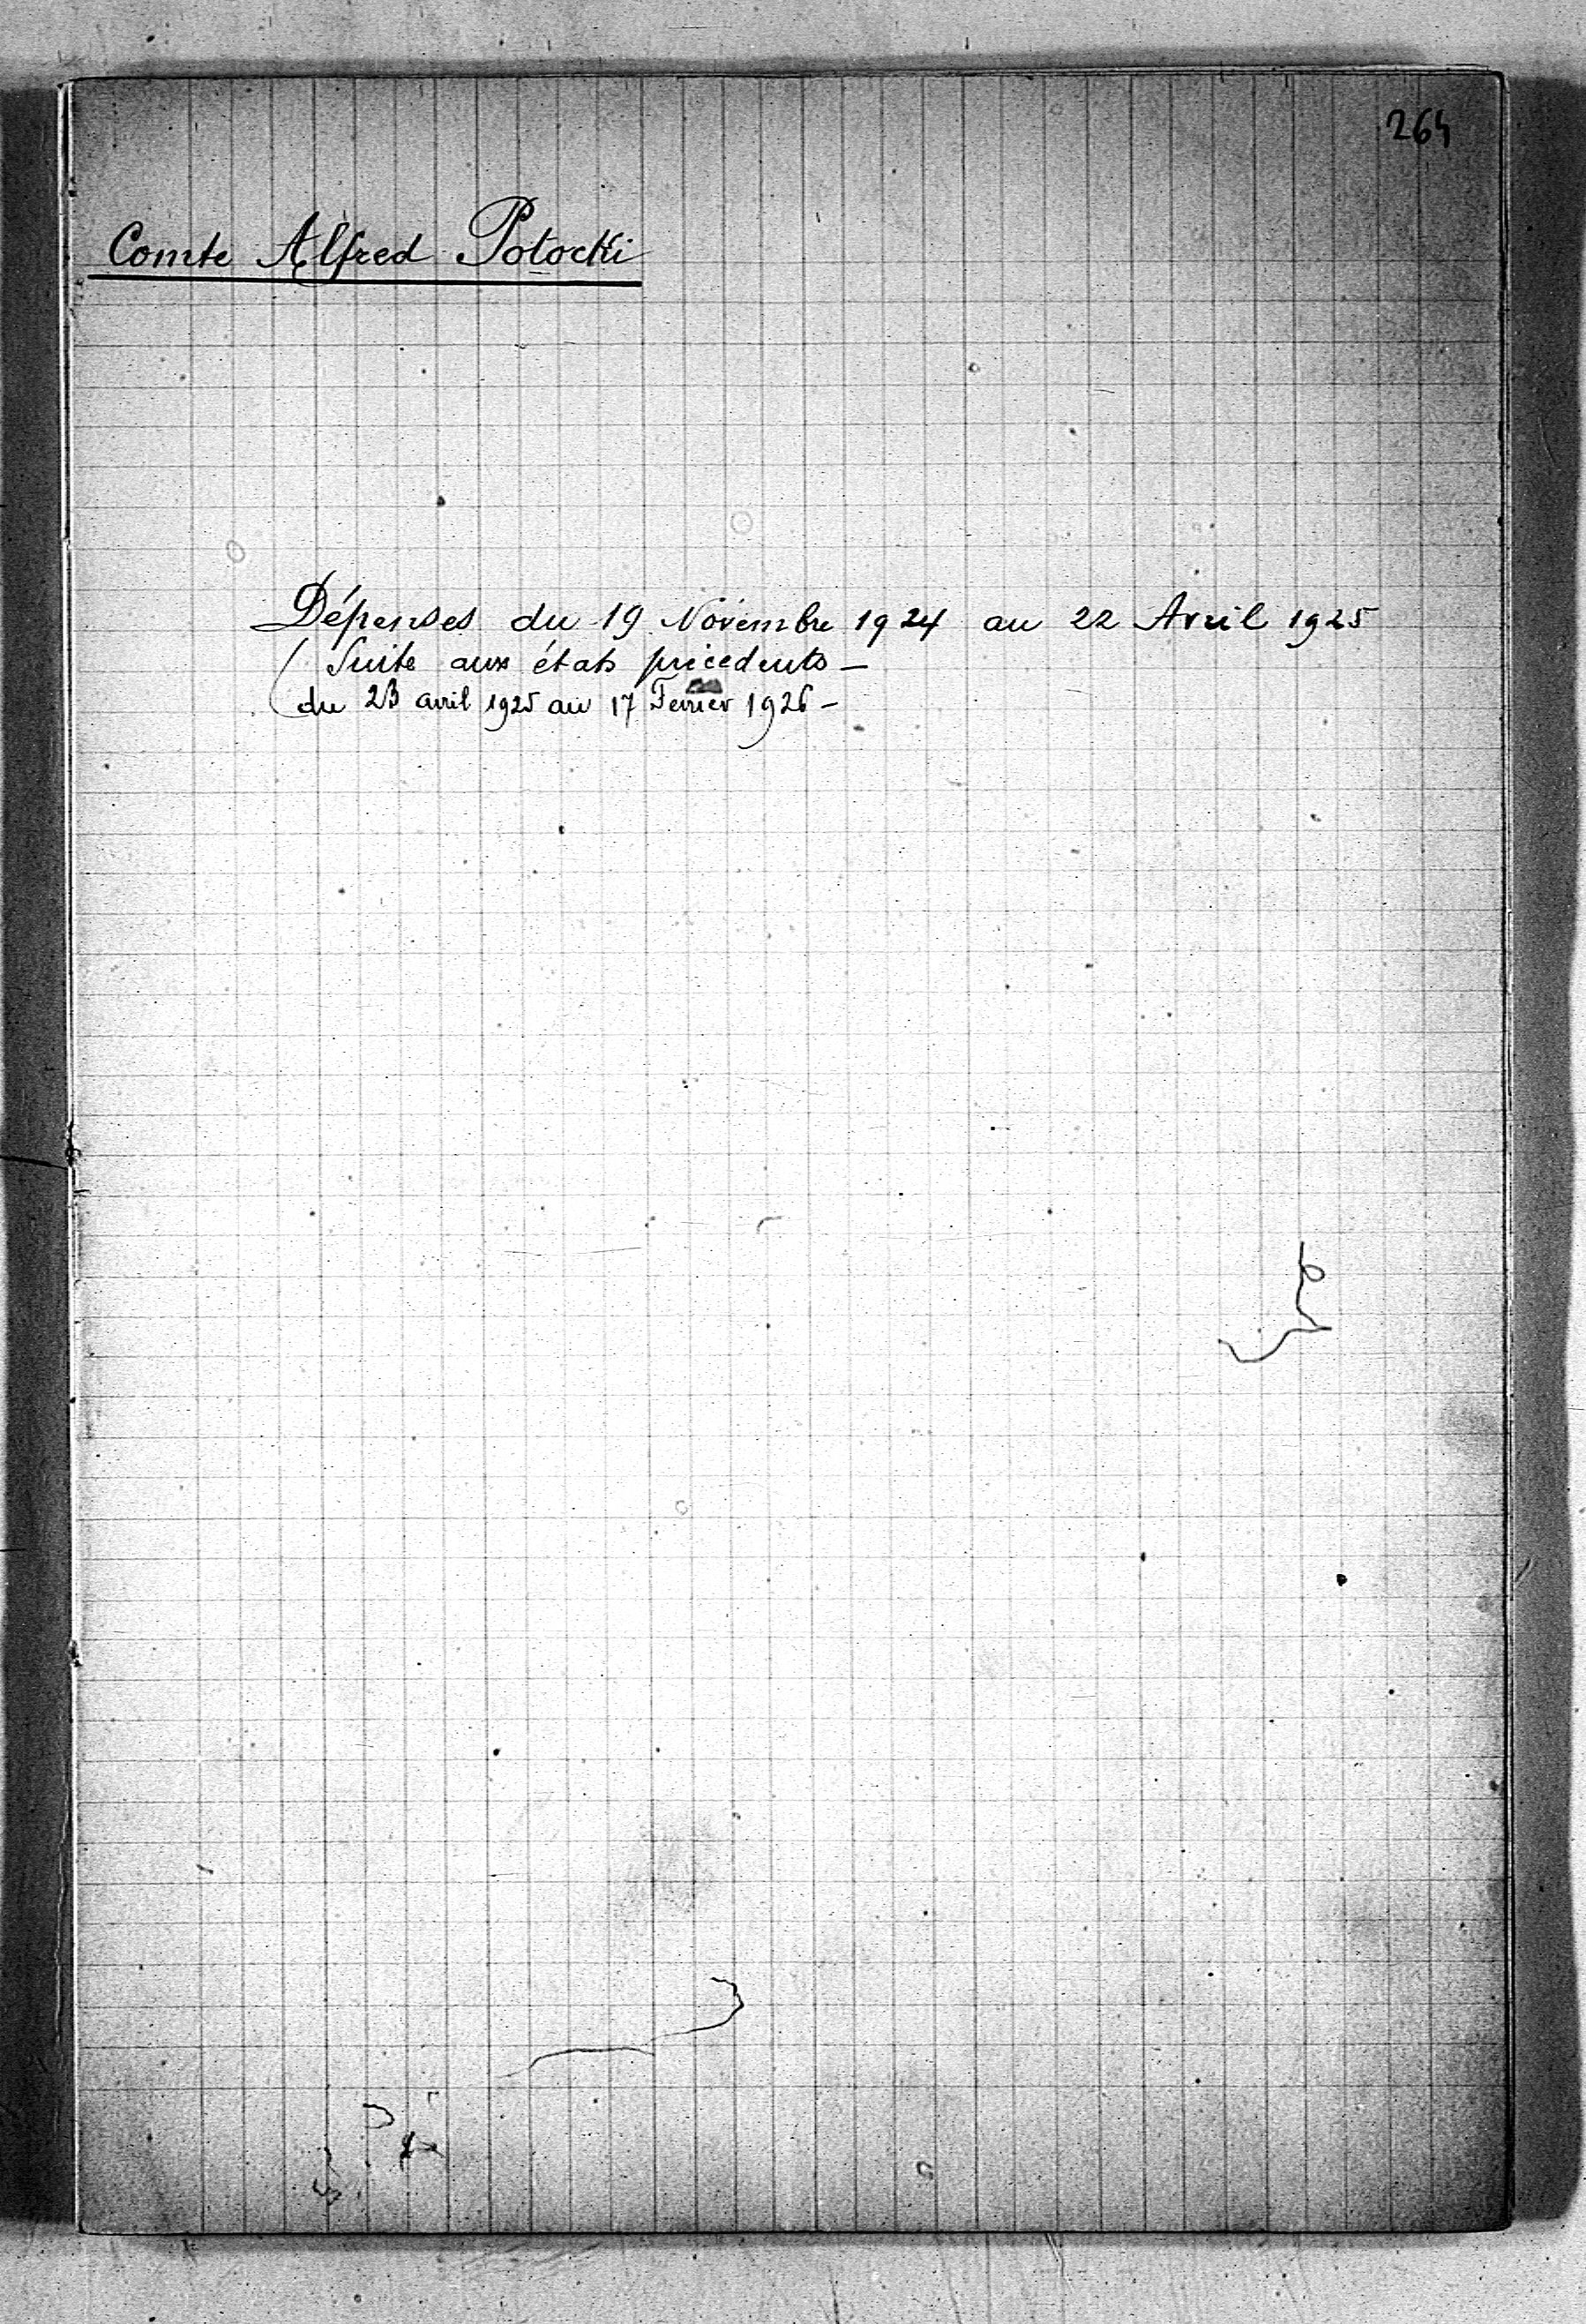 264
Comte Alfred Potocki
Dépenses du 19 Novembre 1924 au 22 Avril 1925
(Suite aux états précedents —
du 23 avril 1925 au 17 Fevrier 1926 —